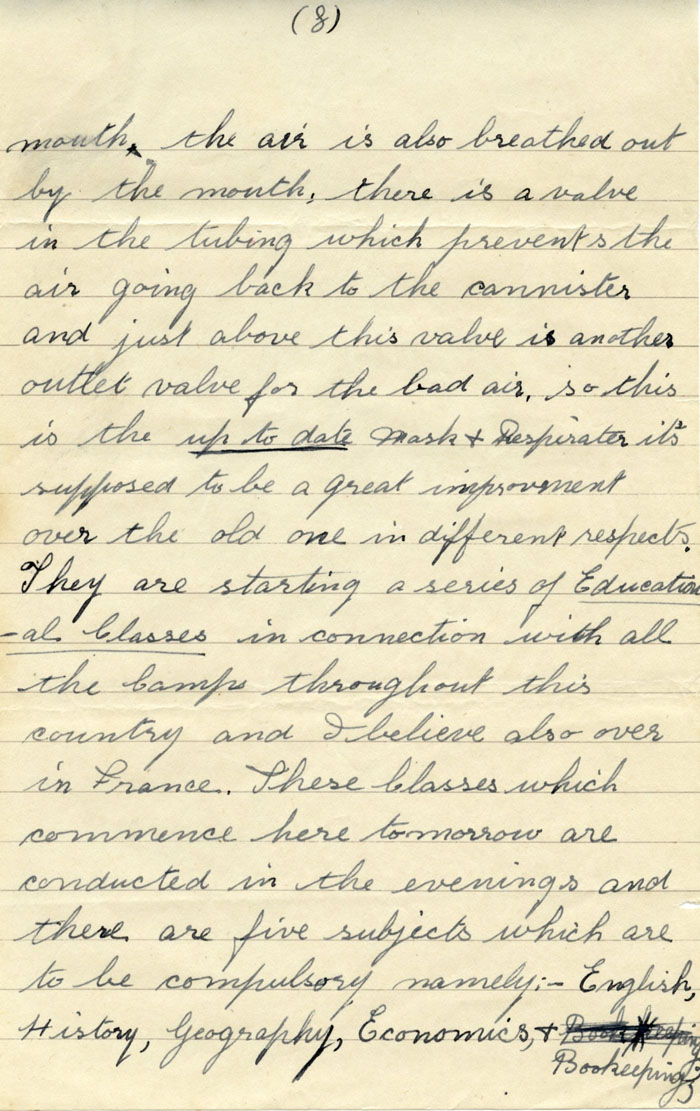 (8)
mouth, the air is also breathed out
by the mouth, there is a valve
in the tubing which prevents the
air going back to the cannister
and just above this valve is another
outlet valve for the bad air, so this
is the up to date Mask & Respirater its
supposed to be a great improvment
over the old one in different respects.
They are starting a series of Education
-al Classes in connection with all
the Camps throughout this
country and I believe also over
in France. These Classes which
commence here tomorrow are
conducted in the evenings and
there are five subjects which are
to be compulsory namely:- English,
History, Geography, Economics, & Book Keeping
Bookeeping,